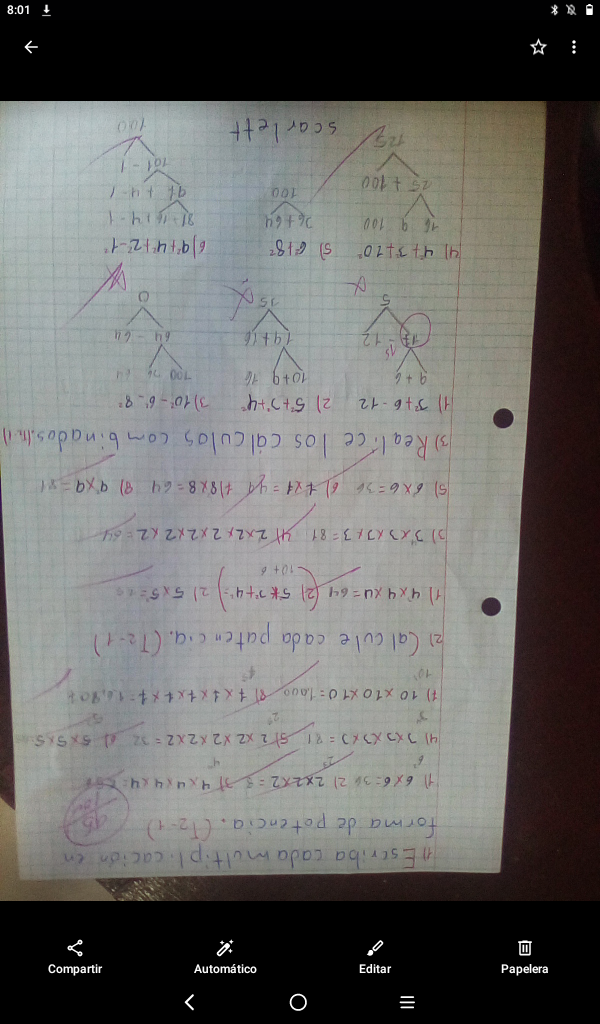 8:01
1) Escriba cada multiplicación en
forma de potencia. (T2-1)
95
100
1) 6x6=36 2) 2x2x2= 3) 4x4x4x4=
4) 3x3x3x3=81 5) 2x2x2x2x2=32 6) 5x5x5=
7) 10x10x10=1.000 8) 7x7x7x7x7=16,807
2) Calcule cada patencia. (T2-1)
1) 4x4x4=64 2) 5x5=
10+6
3) 3x3x3x3=81 4) 2x2x2x2x2x2=64
5) 6x6=36 6) 7x7=49 7) 8x8=64 8) 9x9=81
3) Realice los cálculos combinados.
1) 3²+6-12 2) 5²+3²+4² 3) 10²-6²-8²
9+6 10+9 16 100 36 64
15 -12 19+16 64-64
5 35 0
4) 4²+3²+10² 5) 6²+8² 6) 9²+4²+2²-1²
16 9 100 36+64 81-16+4-1
25+100 100 +4-1
125 101-1
scarlett 100
Compartir Automático Editar Papelera